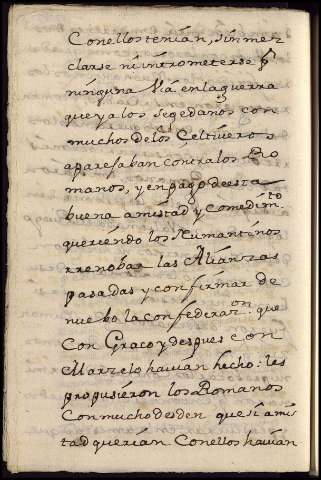 Con ellos tenian, sin mez
clarse ni intrometerse pr
ninguna Via en la guerra
que ya los Segedanos con
muchos de los Celtiveros
aparejaban contra los Ro
manos, y en pago de esta
buena amistad y comedimto
queriendo los Numantinos
rrenobar las Alianzas
pasadas y confirmar de
nuebo la confederaron que
Con Graco y despues con
Marzelo havian hecho: les
propusieron los Romanos
Con mucho desden que si amis
tad querian Con ellos havian